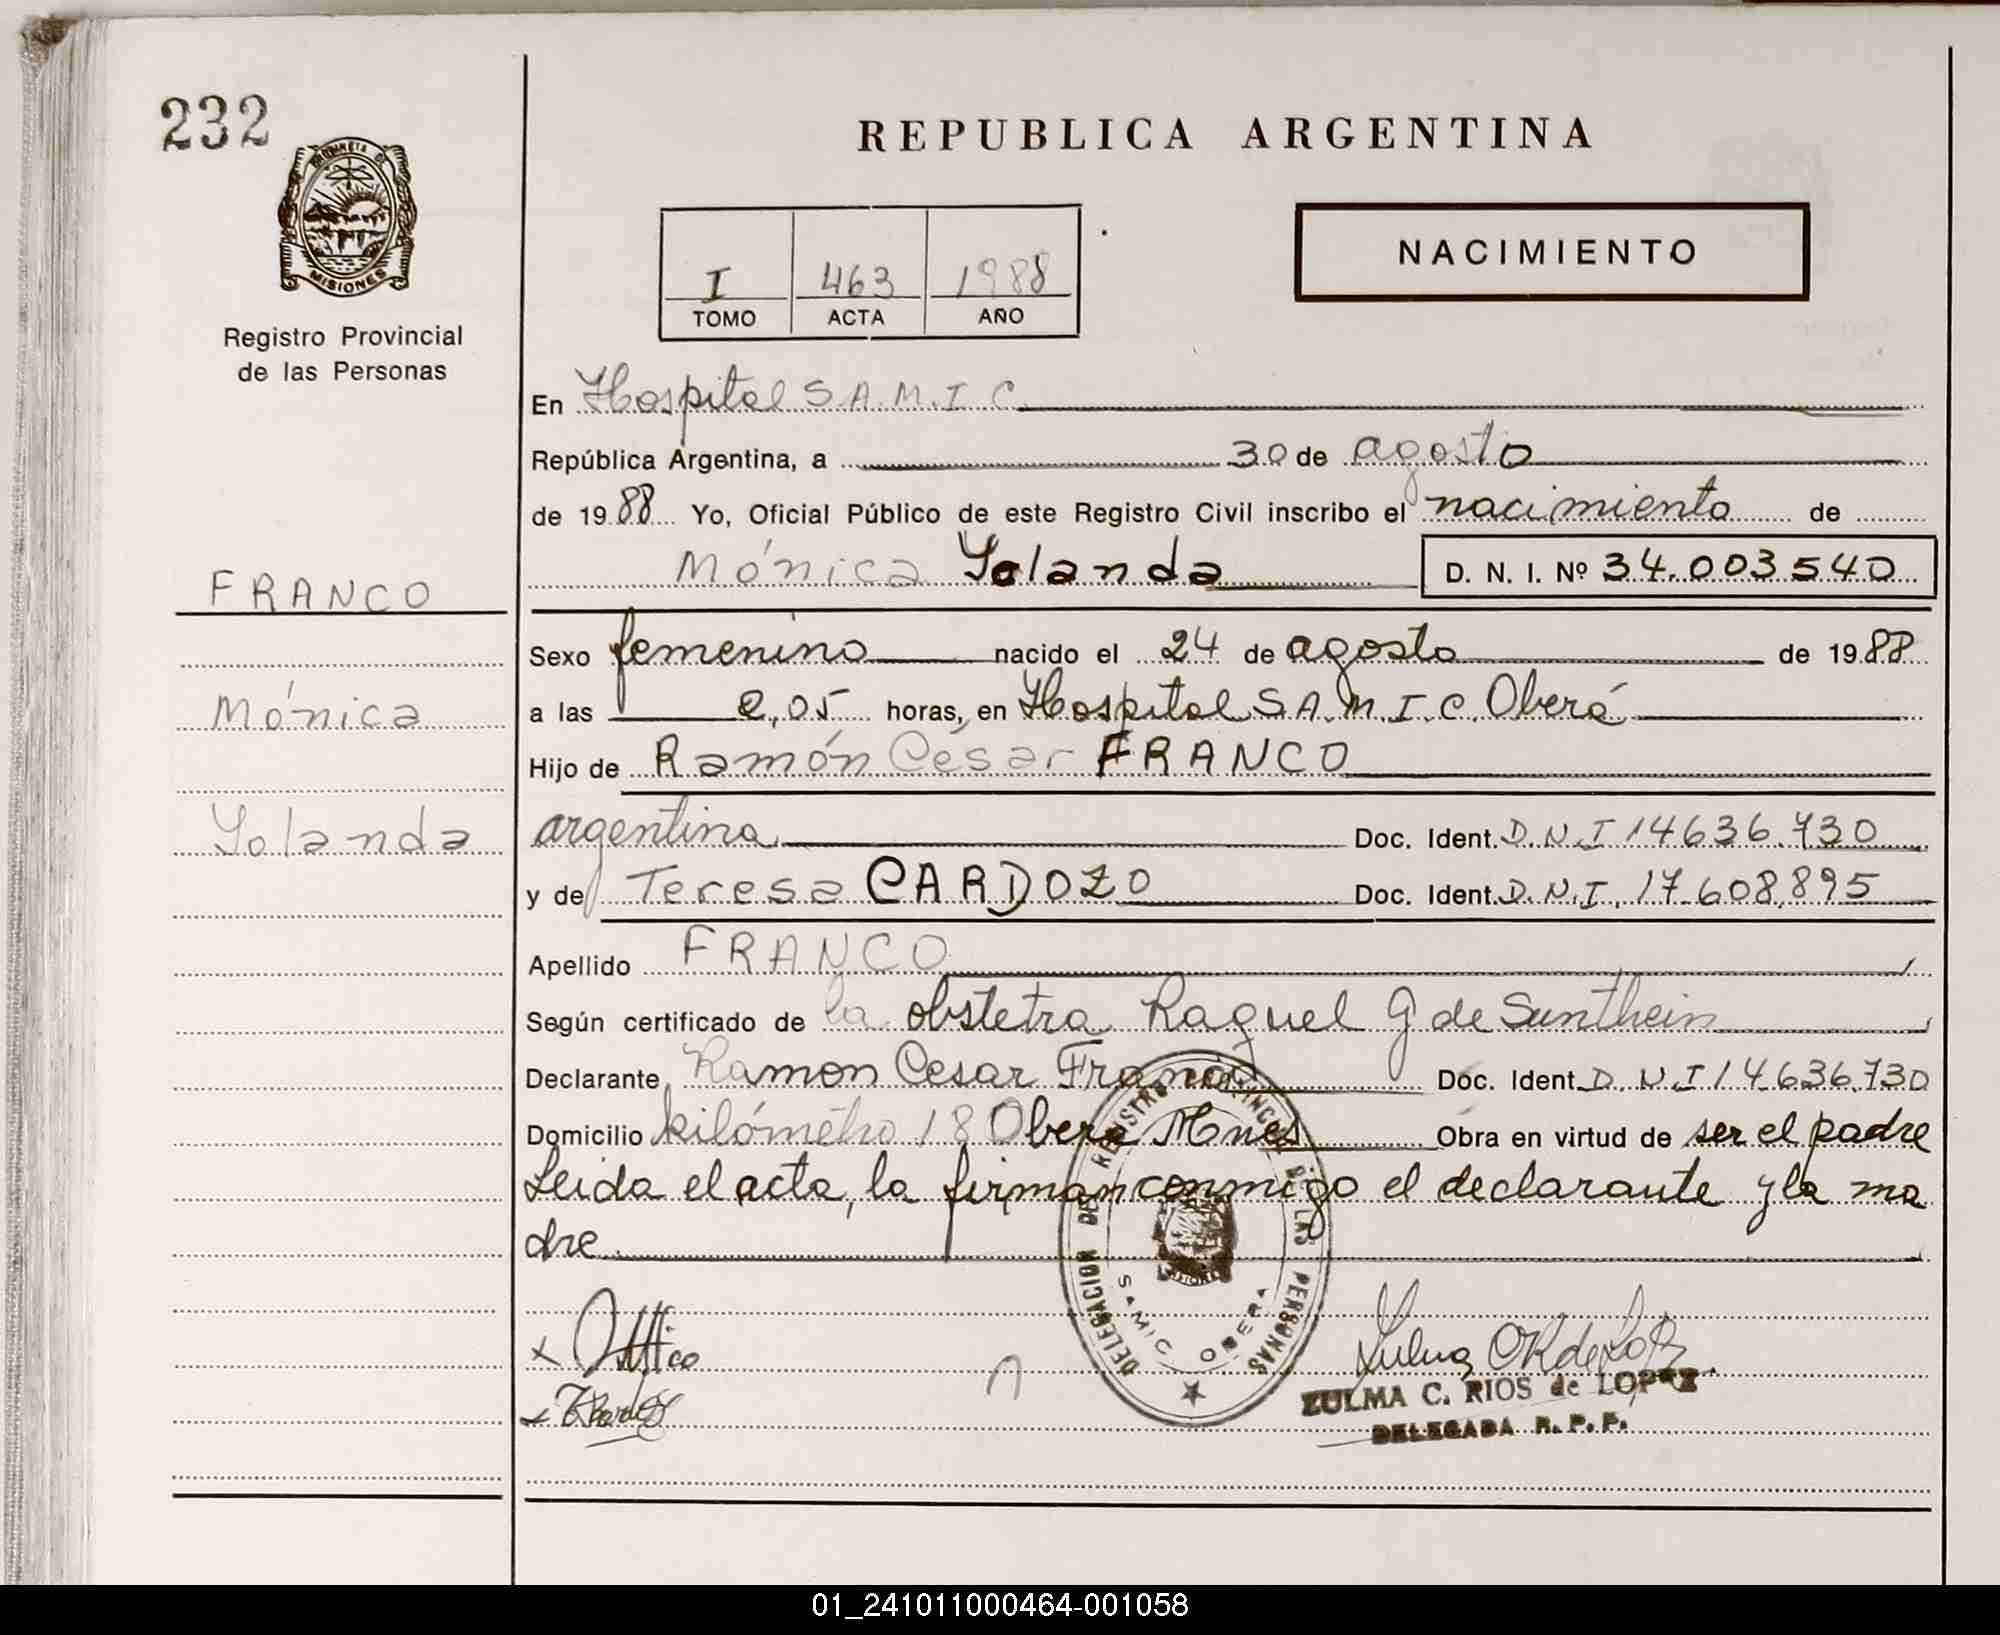 232
PROVINCIA DE
MISIONES
Registro Provincial
de las Personas
REPUBLICA ARGENTINA
NACIMIENTO
I 463 1988
TOMO ACTA AÑO
En Hospital S.A.M.I.C.
República Argentina, a 30 de agosto
de 1988 Yo, Oficial Público de este Registro Civil inscribo el nacimiento de
Mónica Yolanda D. N. I. Nº 34.003540
FRANCO
Mónica
Yolanda
Sexo femenino nacido el 24 de agosto de 1988
a las 2,05 horas, en Hospital S.A.M.I.C. Oberá
Hijo de Ramón César FRANCO
argentina Doc. Ident. D.N.I 14636.730
y de Teresa CARDOZO Doc. Ident. D.N.I. 17.608.895
Apellido FRANCO
Según certificado de la obstetra Raquel G de Sunthein
Declarante Ramon Cesar Franco Doc. Ident. D.N.I 14.636.730
Domicilio kilómetro 18 Obera Mnes Obra en virtud de ser el padre
Leida el acta, la firman conmigo el declarante y la ma
dre.
DELEGACION DEL REGISTRO PROVINCIAL DE LAS PERSONAS
SAMIC OBERA
ZULMA C. RIOS de LOPEZ
DELEGADA R.P.P.
01_241011000464-001058